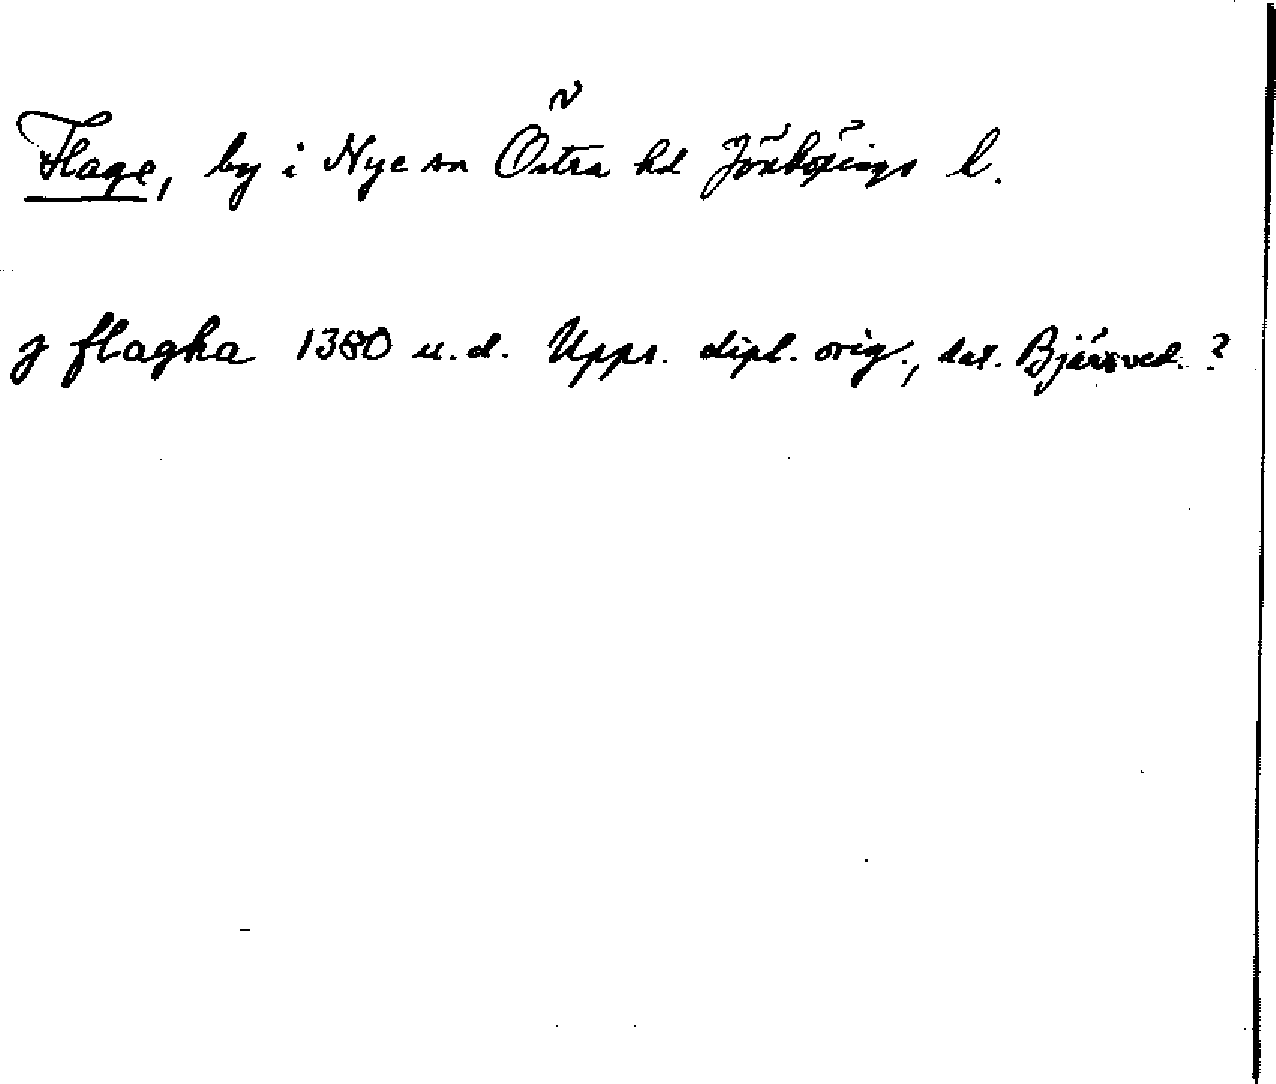 Flage, by i Nye sn Östra hd Jönköpings l.
j flagha 1380 u.d. Upps. dipl. orig., dat. Bjärsved. ?